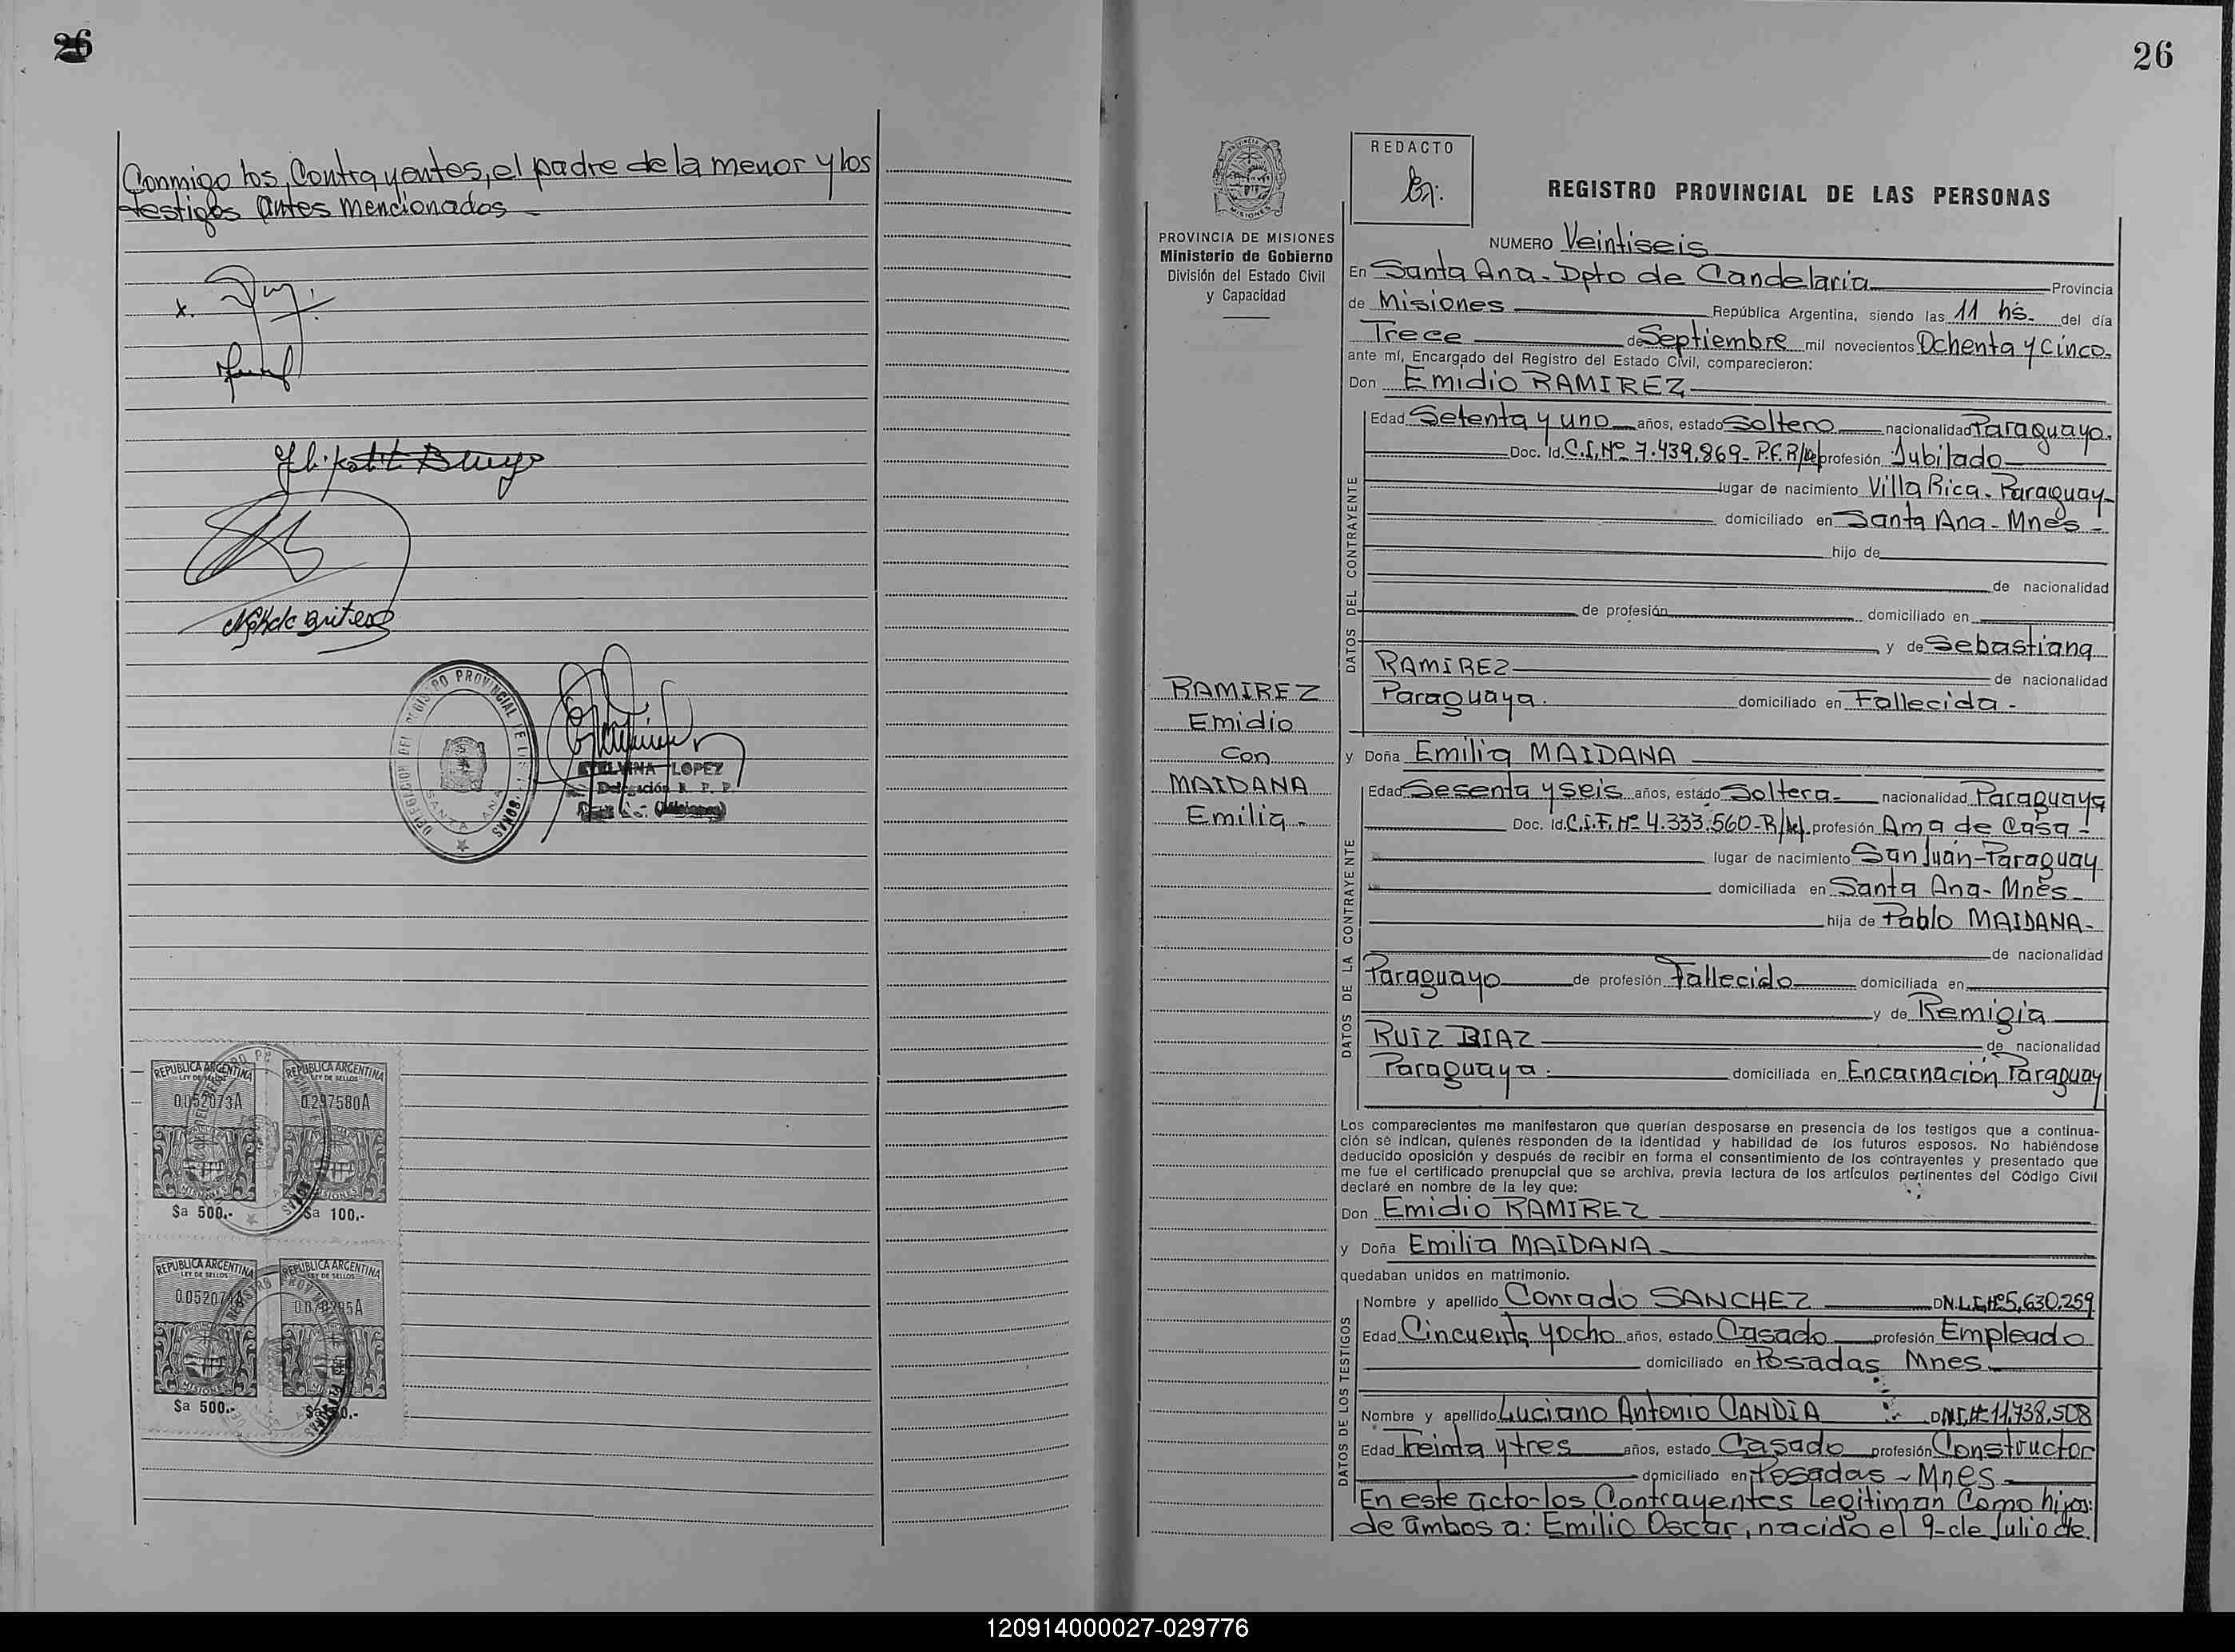 26
Conmigo los, Contrayentes, el padre de la menor y los
testigos antes mencionados
x.
DELEGACION DEL REGISTRO PROVINCIAL DE LAS PERSONAS
SANTA ANA
ETELVINA LOPEZ
Delegación R. P. P.
(Misiones)
REPUBLICA ARGENTINA
LEY DE SELLOS
0.052073A
MISIONES
$a 500.-
REPUBLICA ARGENTINA
LEY DE SELLOS
0.297580A
MISIONES
$a 100.-
REPUBLICA ARGENTINA
LEY DE SELLOS
MISIONES
$a 500.-
REPUBLICA ARGENTINA
LEY DE SELLOS
26
MISIONES
PROVINCIA DE MISIONES
Ministerio de Gobierno
División del Estado Civil
y Capacidad
RAMIREZ
Emidio
Con
MAIDANA
Emilia -
REDACTO
REGISTRO PROVINCIAL DE LAS PERSONAS
NUMERO Veintiseis
En Santa Ana - Dpto de Candelaria Provincia
de Misiones República Argentina, siendo las 11 hs. del día
Trece de Septiembre mil novecientos Ochenta y Cinco.
ante mí, Encargado del Registro del Estado Civil, comparecieron:
Don Emidio RAMIREZ
DATOS DEL CONTRAYENTE
Edad Setenta y uno años, estado Soltero nacionalidad Paraguayo.
Doc. Id. C.I. Nº 7.439.869 - P.F. profesión Jubilado
lugar de nacimiento Villa Rica - Paraguay -
domiciliado en Santa Ana - Mnes -
hijo de
de nacionalidad
de profesión domiciliado en
y de Sebastiana
RAMIREZ de nacionalidad
Paraguaya. domiciliado en Fallecida -
y Doña Emilia MAIDANA
DATOS DE LA CONTRAYENTE
Edad Sesenta y seis años, estado Soltera - nacionalidad Paraguaya
Doc. Id. C.I.F. Nº 4.333.560 - profesión Ama de Casa -
lugar de nacimiento San Juan - Paraguay
domiciliada en Santa Ana - Mnes -
hija de Pablo MAIDANA -
de nacionalidad
Paraguayo de profesión Fallecido domiciliada en
y de Remigia
RUIZ DIAZ de nacionalidad
Paraguaya. domiciliada en Encarnación Paraguay
Los comparecientes me manifestaron que querían desposarse en presencia de los testigos que a continua-
ción se indican, quienes responden de la identidad y habilidad de los futuros esposos. No habiéndose
deducido oposición y después de recibir en forma el consentimiento de los contrayentes y presentado que
me fue el certificado prenupcial que se archiva, previa lectura de los artículos pertinentes del Código Civil
declaré en nombre de la ley que:
Don Emidio RAMIREZ
y Doña Emilia MAIDANA
quedaban unidos en matrimonio.
DATOS DE LOS TESTIGOS
Nombre y apellido Conrado SANCHEZ DN.L.E. Nº 5.630.259
Edad Cincuenta y ocho años, estado Casado profesión Empleado
domiciliado en Posadas Mnes
Nombre y apellido Luciano Antonio CANDIA DNI. Nº 11.738.508
Edad treinta y tres años, estado Casado profesión Constructor
domiciliado en Posadas - Mnes -
En este acto los Contrayentes Legitiman Como hijos:
de ambos a: Emilio Oscar, nacido el 9 de Julio de
120914000027-029776